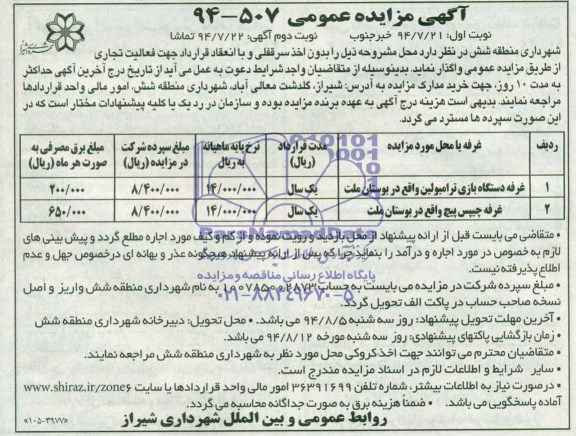 آگهی مزایده عمومی ۵۰۷-۹۴
نوبت اول: ۹۴/۷/۲۱ خبرجنوب نوبت دوم آگهی: ۹۴/۷/۲۲ تماشا
شهرداری منطقه شش در نظر دارد محل مشروحه ذیل را بدون اخذ سرقفلی و با انعقاد قرارداد جهت فعالیت تجاری
از طریق مزایده عمومی واگذار نماید. بدینوسیله از متقاضیان واجد شرایط دعوت به عمل می آید از تاریخ درج آخرین آگهی حداکثر
به مدت ۱۰ روز، جهت خرید مدارک مزایده به آدرس: شیراز، گلدشت معالی آباد، شهرداری منطقه شش، امور مالی واحد قراردادها
مراجعه نمایند. بدیهی است هزینه درج آگهی به عهده برنده مزایده بوده و سازمان در رد یک یا کلیه پیشنهادات مختار است که در
این صورت سپرده ها مسترد می گردد.
ردیف غرفه یا محل مورد مزایده مدت قرارداد (ریال) نرخ پایه ماهیانه به ریال مبلغ سپرده شرکت در مزایده (ریال) مبلغ برق مصرفی به صورت هر ماه (ریال)
۱ غرفه دستگاه بازی ترامبولین واقع در بوستان ملت یک سال ۱۴/۰۰۰/۰۰۰ ۸/۴۰۰/۰۰۰ ۲۰۰/۰۰۰
۲ غرفه جیبس پیچ واقع در بوستان ملت یک سال ۱۴/۰۰۰/۰۰۰ ۸/۴۰۰/۰۰۰ ۶۵۰/۰۰۰
• متقاضی می بایست قبل از ارائه پیشنهاد از محل بازدید و رویت نموده و از کم و کیف مورد اجاره مطلع گردد و پیش بینی های
لازم به خصوص در مورد اجاره و درآمد را بنماید چرا که پس از ارائه پیشنهاد هیچگونه عذر و بهانه ای درخصوص جهل و عدم
اطلاع پذیرفته نیست.
پایگاه اطلاع رسانی مناقصه و مزایده
• مبلغ سپرده شرکت در مزایده می بایست به حساب ۱۰۰۷۸۵۰۰۲۸۷۳ به نام شهرداری منطقه شش واریز و اصل
نسخه صاحب حساب در پاکت الف تحویل گردد.
۰۲۱-۸۸۳۴۹۶۷۰-۵
• آخرین مهلت تحویل پیشنهاد: روز سه شنبه ۹۴/۸/۵ می باشد. • محل تحویل: دبیرخانه شهرداری منطقه شش
• زمان بازگشایی پاکتهای پیشنهادی: روز سه شنبه مورخه ۹۴/۸/۱۲ می باشد.
• متقاضیان محترم می توانند جهت اخذ کروکی محل مورد نظر به شهرداری منطقه شش مراجعه نمایند.
• سایر شرایط و اطلاعات لازم در اسناد مزایده مندرج است.
• در صورت نیاز به اطلاعات بیشتر، شماره تلفن ۳۶۳۹۱۶۹۹ امور مالی واحد قراردادها یا سایت www.shiraz.ir/zone6
آماده پاسخگویی می باشد. • ضمناً هزینه برق به صورت جداگانه محاسبه می گردد.
روابط عمومی و بین الملل شهرداری شیراز
«۱۰۵-۳۹۷۷»